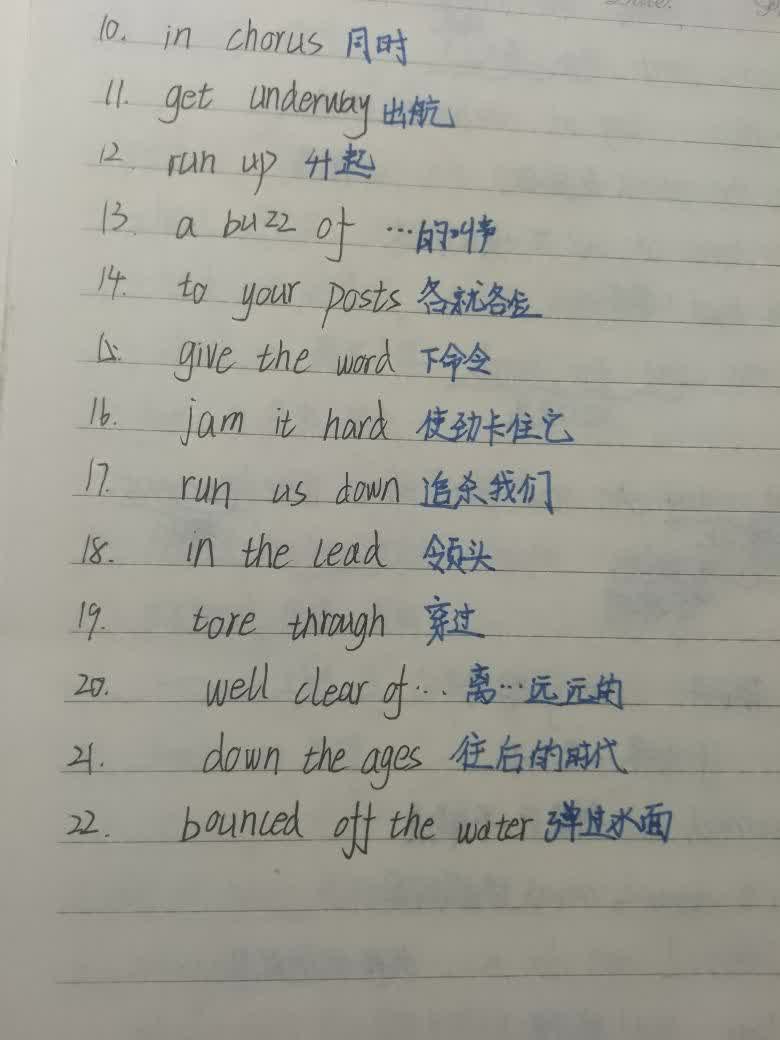 10. in chorus 同时
11. get underway 出航
12. run up 升起
13. a buzz of …的叫声
14. to your posts 各就各位
15. give the word 下命令
16. jam it hard 使劲卡住它
17. run us down 追杀我们
18. in the lead 领头
19. tore through 穿过
20. well clear of… 离…远远的
21. down the ages 往后的时代
22. bounced off the water 弹过水面